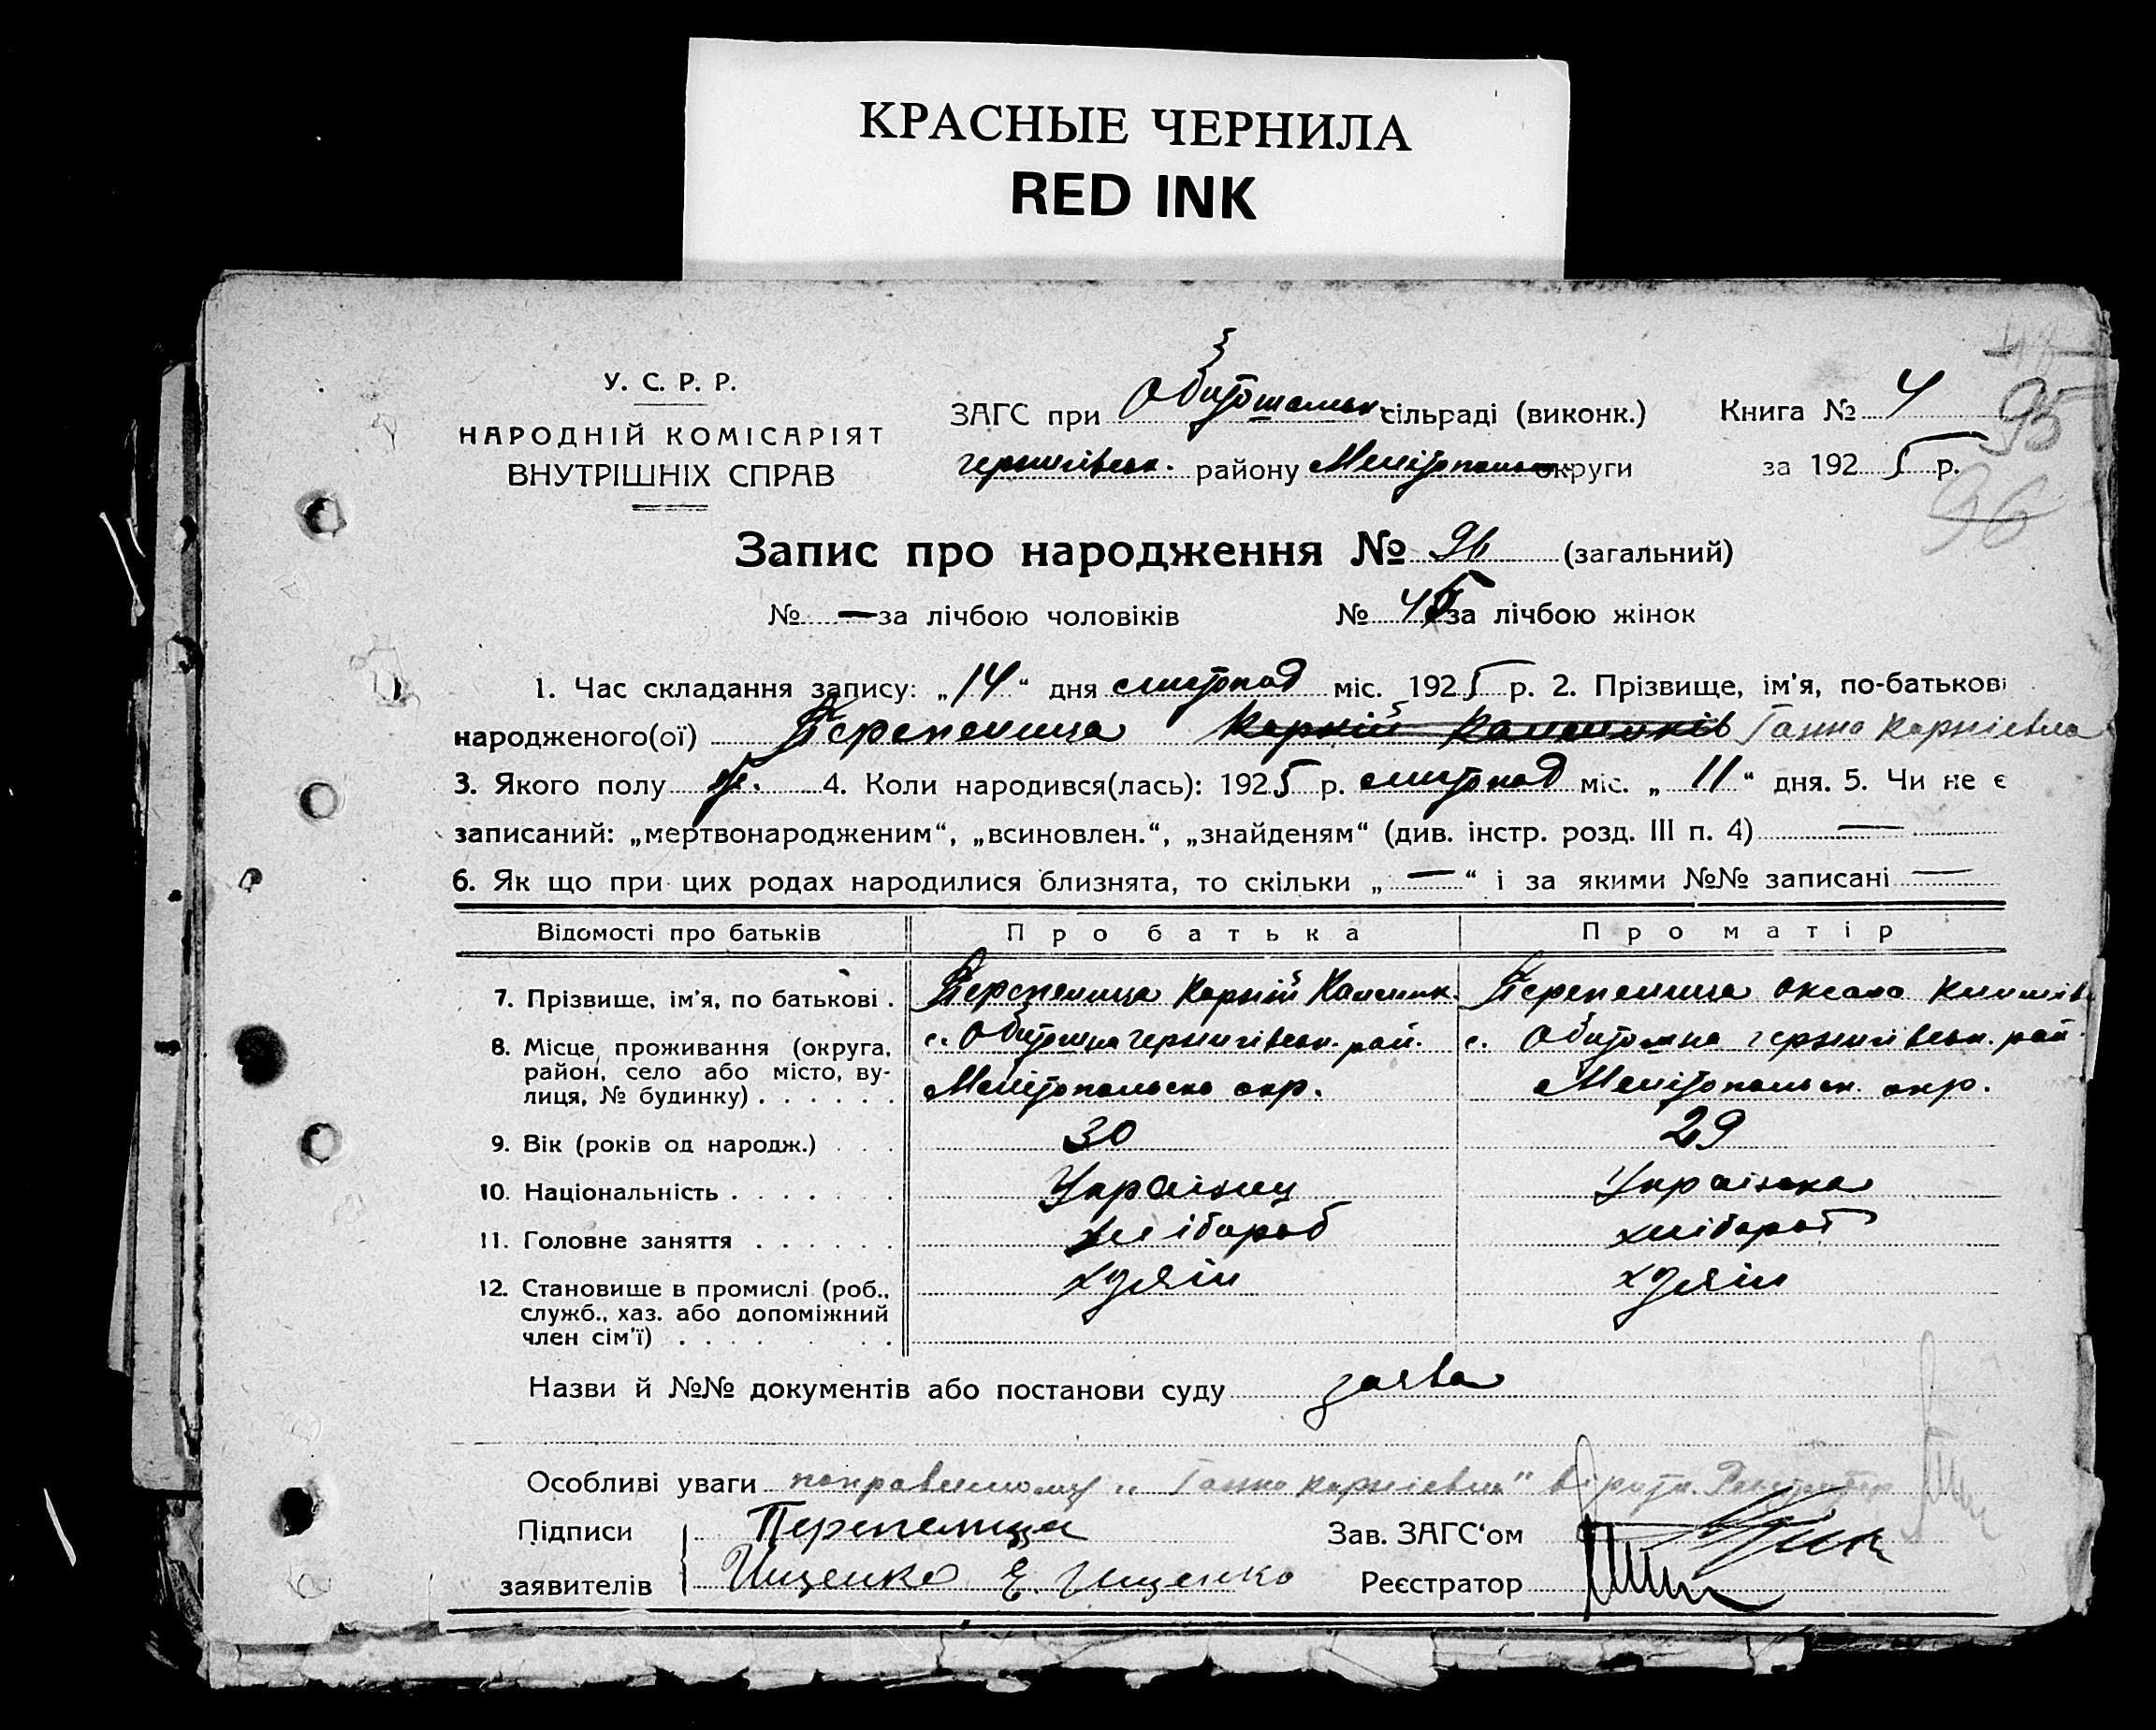 КРАСНЫЕ ЧЕРНИЛА
RED INK
У. С. Р. Р.
НАРОДНІЙ КОМІСАРІЯТ
ВНУТРІШНІХ СПРАВ
ЗАГС при сільраді (виконк.) Книга № 4
95
чернигівськ. району Мелітопольськ округи за 1925 р.
96
Запис про народження № 96 (загальний)
№ — за лічбою чоловіків № 45 за лічбою жінок
1. Час складання запису: „14“ дня листопад міс. 1925 р. 2. Прізвище, ім'я, по-батькові
народженого(ої) Перепелица Корній Ганна Корніевна
3. Якого полу ж. 4. Коли народився(лась): 1925 р. листопад міс. „11“ дня. 5. Чи не є
записаний: „мертвонародженим“, „всиновлен.“, „знайденям“ (див. інстр. розд. III п. 4) —
6. Як що при цих родах народилися близнята, то скільки „—“ і за якими №№ записані —
Відомості про батьків Про батька Про матір
7. Прізвище, ім'я, по батькові . Перепелица Корній Перепелица Оксана
8. Місце проживання (округа, с. Обиточна чернигівськ. рай. с. Обиточна чернигівськ. рай.
район, село або місто, ву-
лиця, № будинку) . . . . . . Мелітопольска окр. Мелітопольск. окр.
9. Вік (років од народж.) . . . 30 29
10. Національність . . . . . . . Украінец Украінка
11. Головне заняття . . . . . . хлібороб хлібороб
12. Становище в промислі (роб., хдяін хдяін
служб., хаз. або допоміжний
член сім'ї) . . . . . .
Назви й №№ документів або постанови суду заява
Особливі уваги поправленому „Ганна Корніевна" вірити. Реєстратор
Підписи Перепелица Зав. ЗАГС'ом
заявителів Ищенко Е. Ищенко Реєстратор